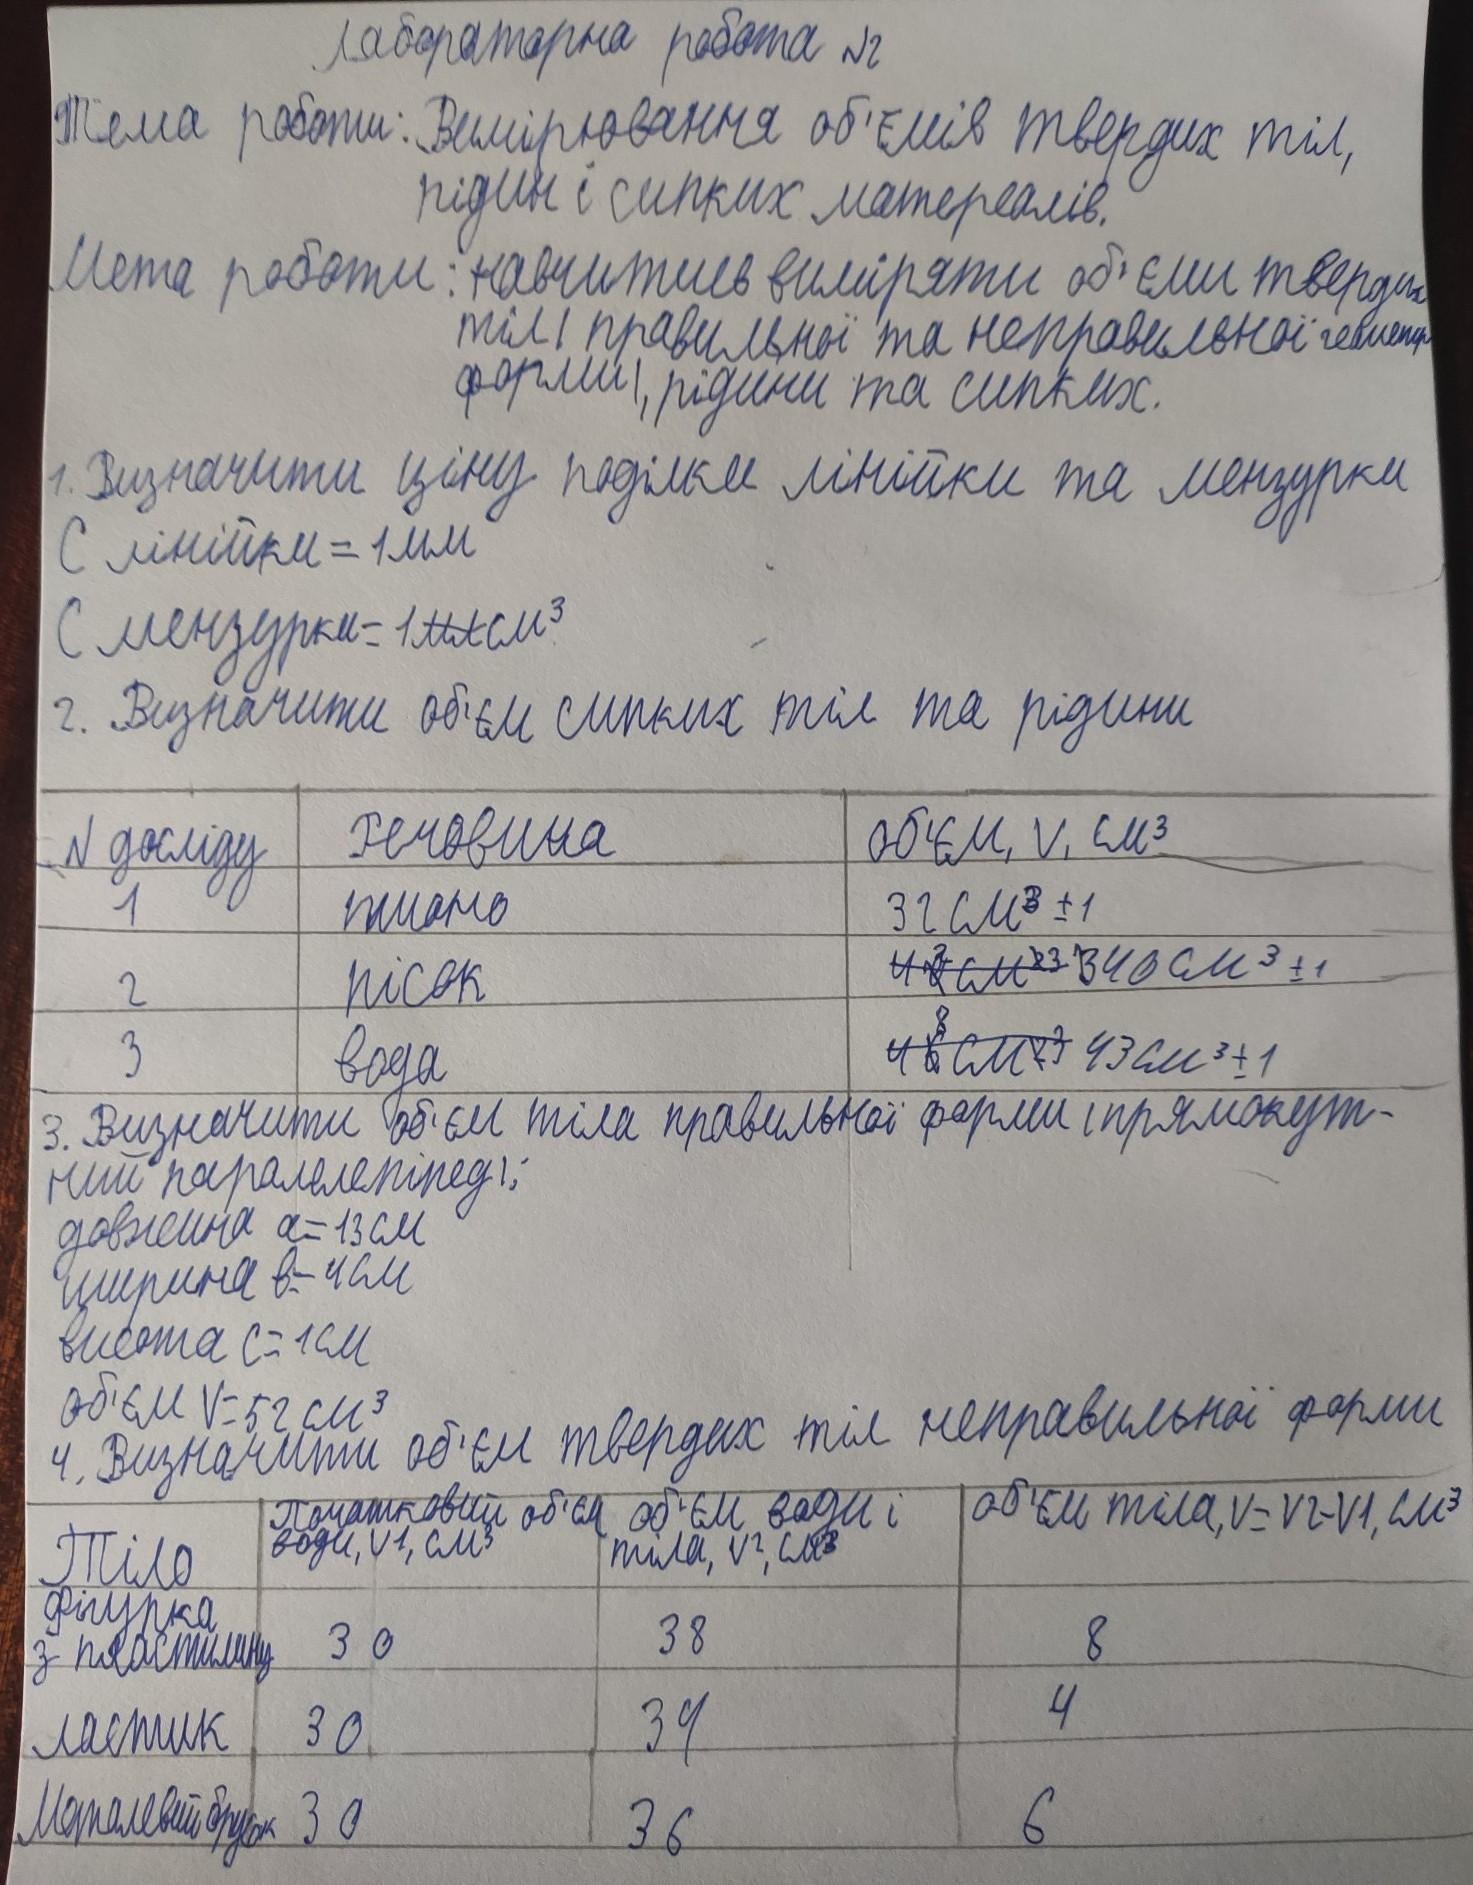 Лабораторна робота №2
Тема роботи: Вимірювання об'ємів твердих тіл,
рідин і сипких матереалів.
Мета роботи: навчитись виміряти об'єми твердих
тіл ( правильної та неправильної геометр
форми), рідини та сипких.
1. Визначити ціну поділки лінійки та мензурки
С лінійки = 1мм
С мензурки = 1мл см³
2. Визначити об'єм сипких тіл та рідини
N досліду Речовина об'єм, V, см³
1 пшоно 32 см³ ±1
2 пісок 340 см³ ±1
3 вода 43 см³ ±1
3. Визначити об'єм тіла правильної форми (прямокут-
ний паралелепіпед);
довжина а=13см
ширина в=4см
висота с=1см
об'єм V=52см³
4. Визначити об'єм твердих тіл неправильної форми
Тіло Початковий об'єм води, V1, см³ об'єм води і тіла, V2, см³ об'єм тіла, V=V2-V1, см³
фігурка з пластилину 30 38 8
ластик 30 34 4
Металевий брусок 30 36 6